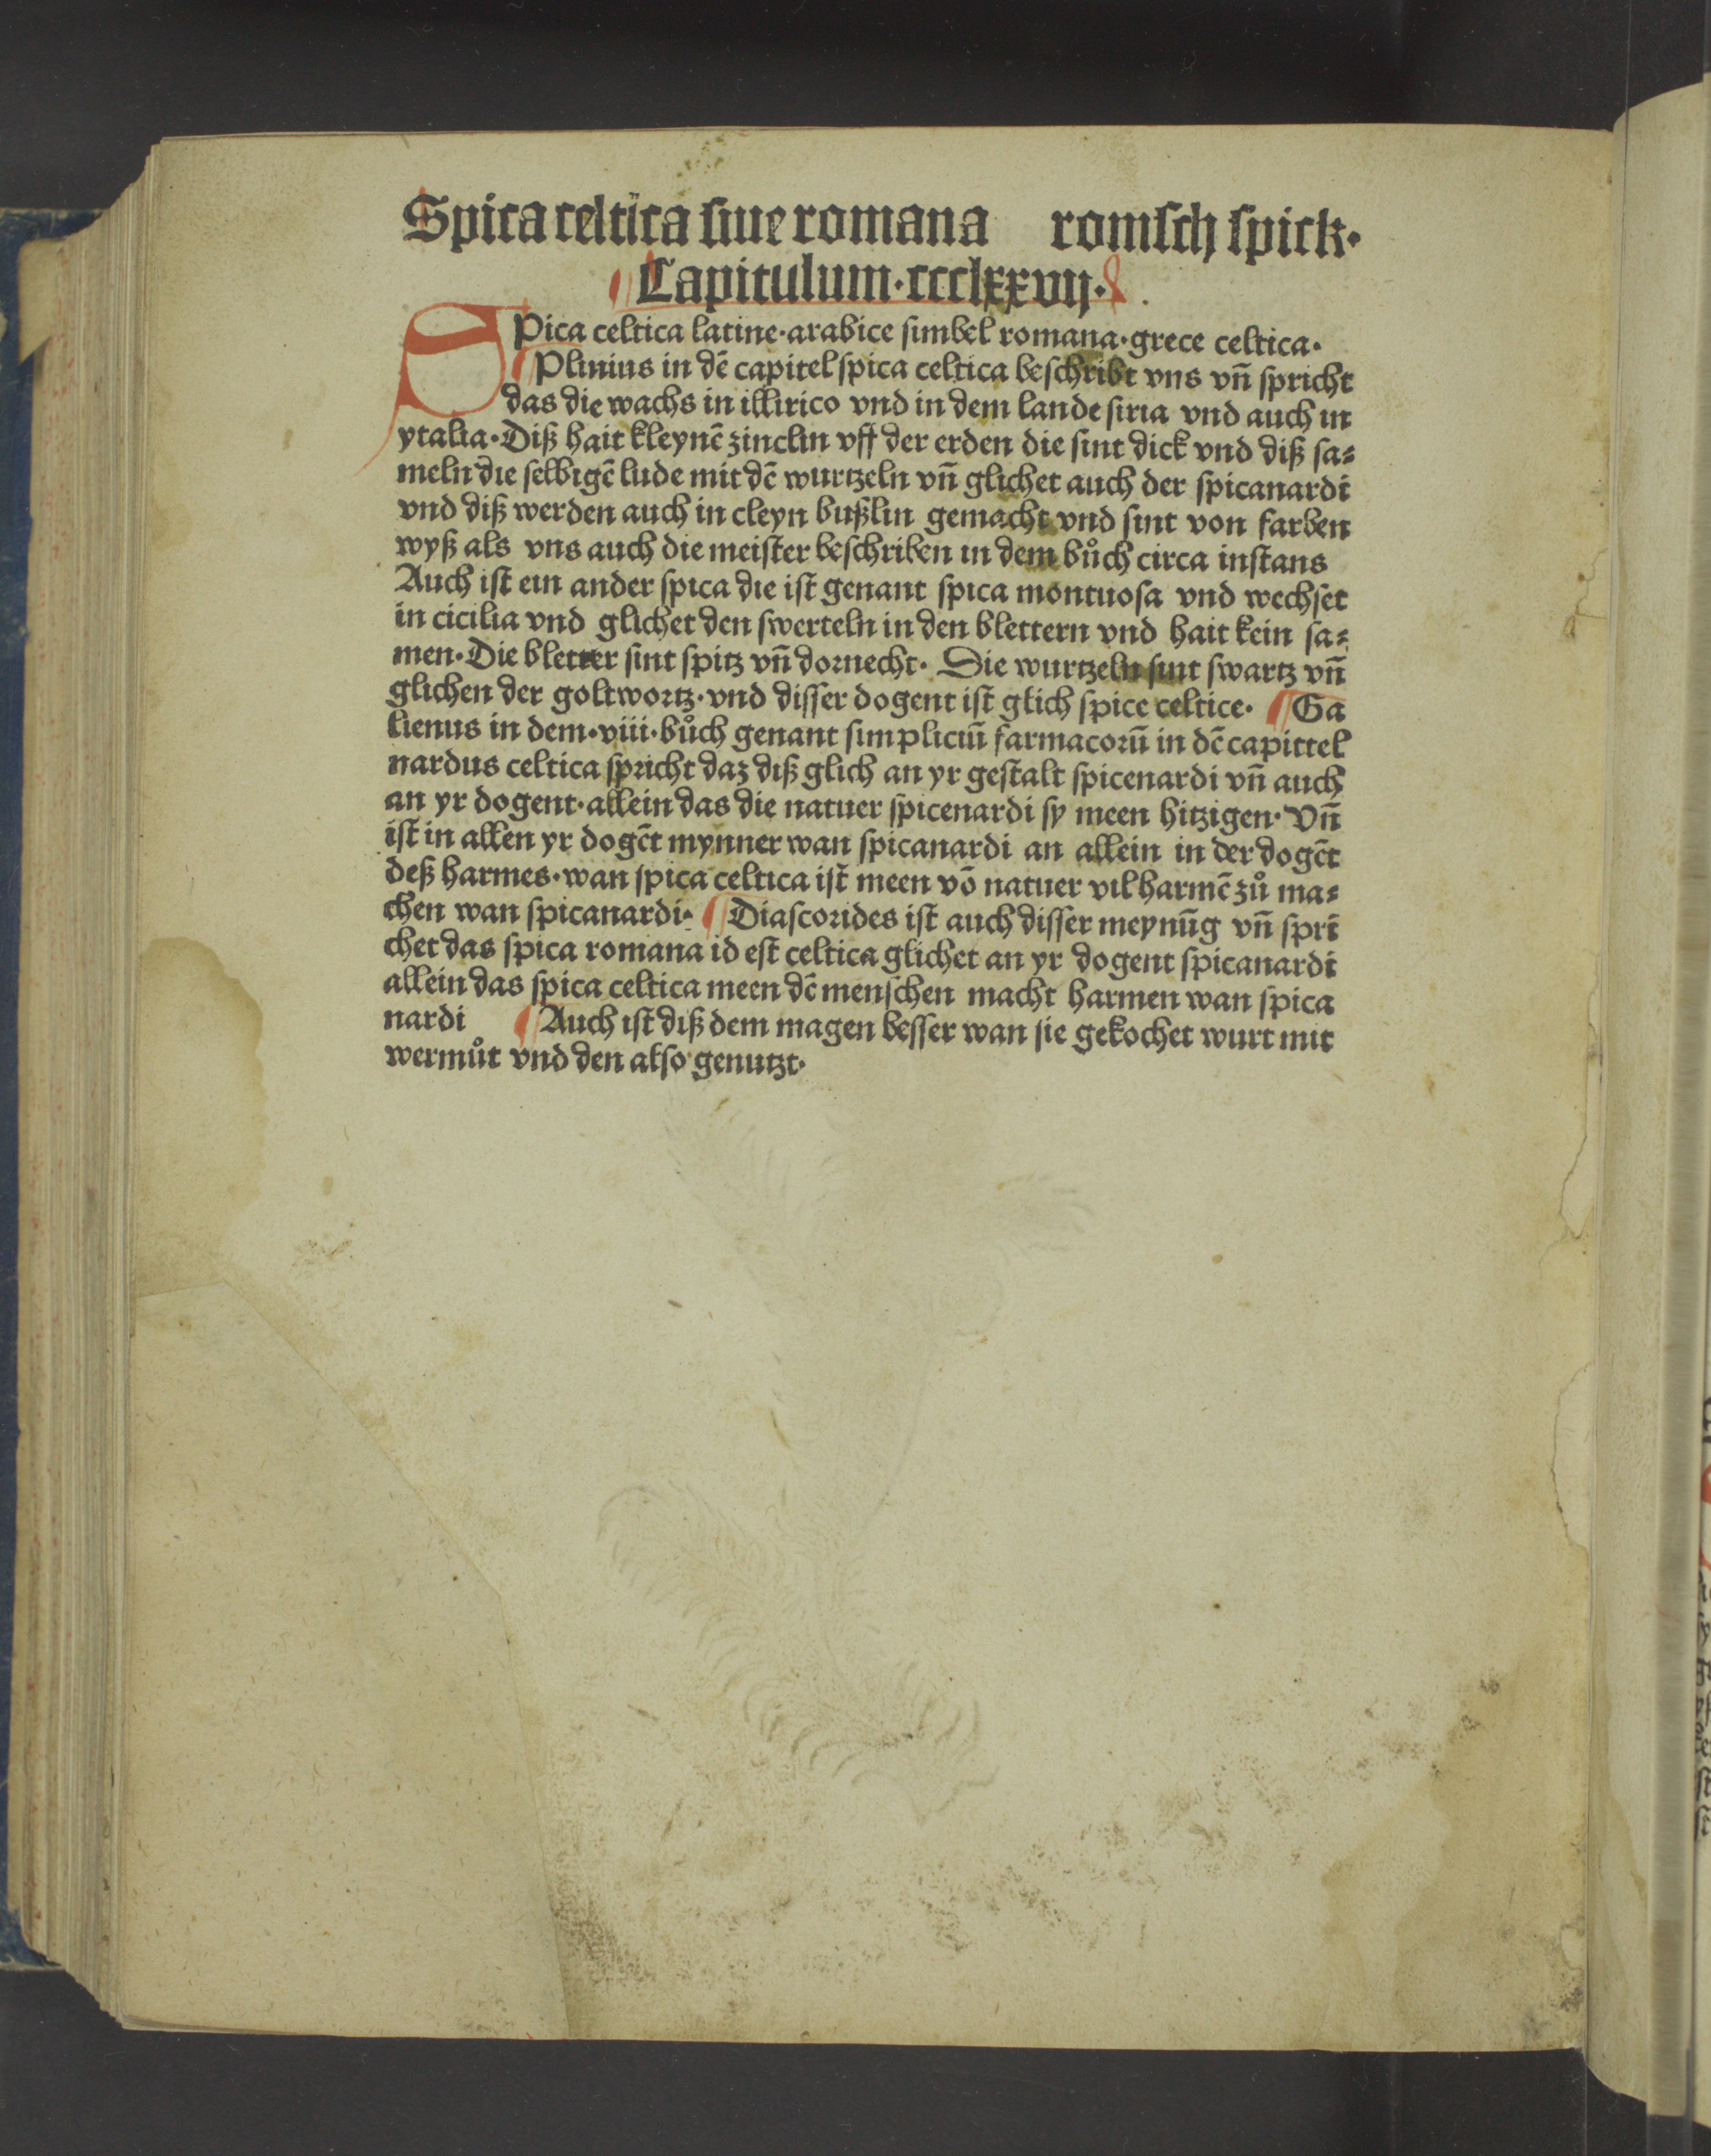 Spica celtica siue romana romsch spick·
Capitulum·ccclxxvij·
SPica celtica latine·arabice simbel romana·grece celtica·
Plinius in dē capitel spica celtica beschribt vns vn̄ spricht
das die wachs in illirico vnd in dem lande siria vnd auch in
ytalia·Diß hait kleynē zinclin vff der erden die sint dick vnd diß sa⸗
meln die selbigē lude mit dē wurtzeln vn̄ glichet auch der spicanardi
vnd diß werden auch in cleyn bußlin gemacht vnd sint von farben
wyß als vns auch die meister beschriben in dem bůch circa instans
Auch ist ein ander spica die ist genant spica montuosa vnd wechset
in cicilia vnd glichet den swerteln in den blettern vnd hait kein sa⸗
men·Die bletter sint spitz vn̄ dornecht· Die wurtzeln sint swartz vn̄
glichen der goltwortz·vnd disser dogent ist glich spice celtice· Ga
lienus in dem·viii·bůch genant simpliciū farmacorū in dē capittel
nardus celtica spricht daz diß glich an yr gestalt spicenardi vn̄ auch
an yr dogent·allein das die natuer spicenardi sy meen hitzigen· Vn̄
ist in allen yr dogēt mynner wan spicanardi an allein in der dogēt
deß harmes·wan spica celtica ist meen vō natuer vil harmē zů ma⸗
chen wan spicanardi· Diascorides ist auch disser meynūg vn̄ spri
chet das spica romana id est celtica glichet an yr dogent spicanardi
allein das spica celtica meen dē menschen macht harmen wan spica
nardi Auch ist diß dem magen besser wan sie gekochet wurt mit
wermůt vnd den also genutzt·